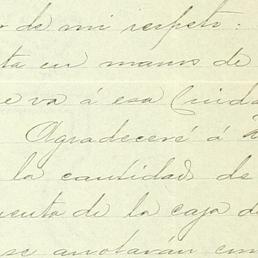 o de mi respeto:
ta en manos de
e va á esa Ciuda
Agradeceré á
la cantidad de
uenta de la caja de
se anotarán em